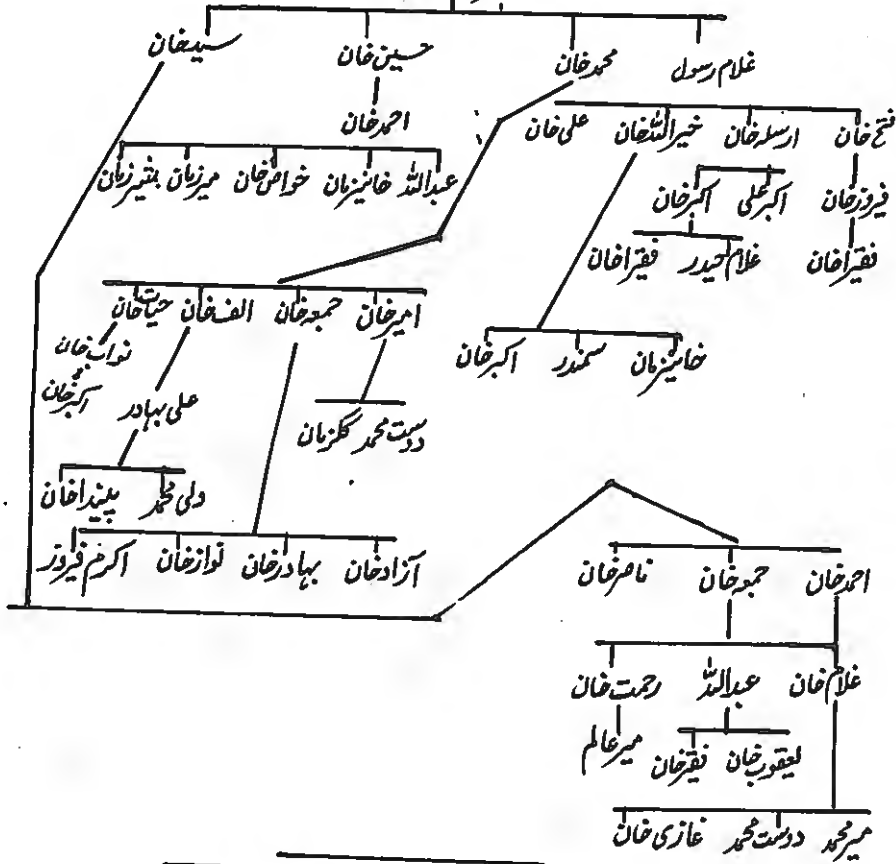 غلام رسول محمد خان حسین خان سید خان
احمد خان
فتح خان ارسلہ خان خیر اللہ خان علی خان
عبداللہ خانیزمان خواص خان میرزمان بشیر زمان
فیروز خان اکبر علی اکبر خان
فقیرا خان غلام حیدر فقیرا خان
امیر خان جمعہ خان الف خان حیات خان
خانیزمان سمندر اکبر خان
نواب خان
اکبر خان
علی بہادر
دوست محمد گلزمان
ولی محمد پیندا خان
آزاد خان بہادر خان نواز خان اکرم فیروز
احمد خان جمعہ خان ناصر خان
غلام خان عبداللہ رحمت خان
یعقوب خان فقیر خان میر عالم
میر محمد دوست محمد غازی خان